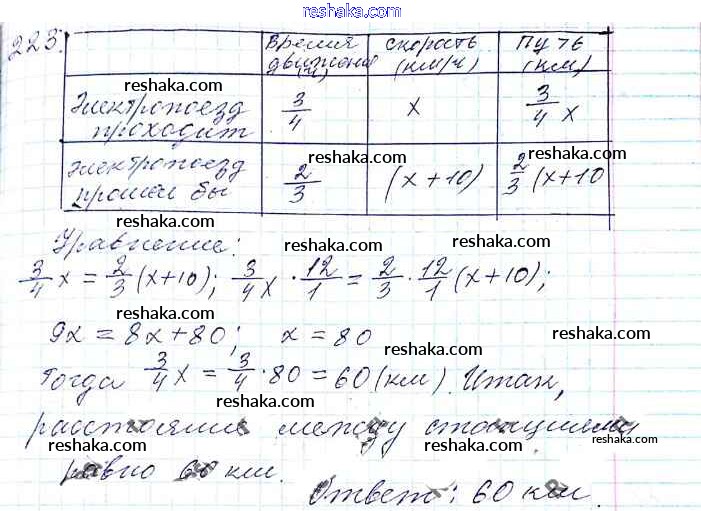 www.reshaka.com
223.
Время движения (ч) | скорость (км/ч) | Путь (км)
reshaka.com
Электропоезд проходит | 3/4 | x | 3/4 x
reshaka.com reshaka.com
reshaka.com
Электропоезд прошёл бы | 2/3 | (x+10) | 2/3 (x+10
reshaka.com
reshaka.com reshaka.com
Уравнение:
3/4 x = 2/3 (x+10); 3/4 x · 12/1 = 2/3 · 12/1 (x+10);
reshaka.com reshaka.com
9x = 8x+80; x = 80
reshaka.com reshaka.com
Тогда 3/4 x = 3/4 · 80 = 60 (км). Итак,
reshaka.com
расстояние между станциями
reshaka.com reshaka.com reshaka.com
равно 60 км.
reshaka.com reshaka.com
Ответ: 60 км.
www.reshaka.com